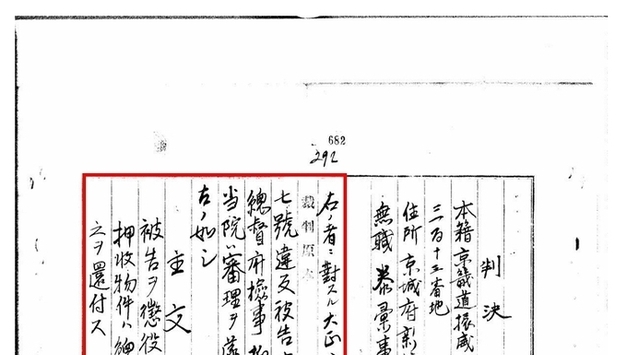 682
292
判決
本籍京畿道振威
三百十三番地
住所京城府
無職
裁判原本
右ノ者ニ對スル大正
七號違反被告
總督府檢事
當院ハ審理ヲ遂
左ノ如シ
主文
被告ヲ懲役
押收物件ハ
之ヲ還付ス